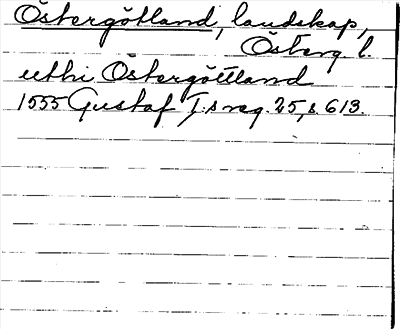 Östergötland, landskap,
Österg. l.
uthi Östergöttland
1555 Gustaf I:s reg. 25, s. 613.